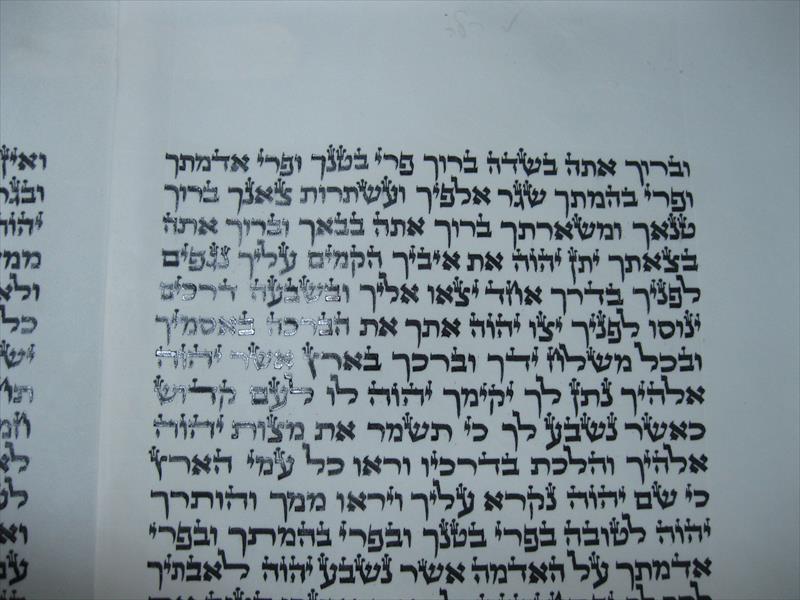 וברוך אתה בשדה ברוך פרי בטנך ופרי אדמתך
ופרי בהמתך שגר אלפיך ועשתרות צאנך ברוך
טנאך ומשארתך ברוך אתה בבאך וברוך אתה
בצאתך יתן יהוה את איביך הקמים עליך נגפים
לפניך בדרך אחד יצאו אליך ובשבעה דרכים
ינוסו לפניך יצו יהוה אתך את הברכה באסמיך
ובכל משלח ידך וברכך בארץ אשר יהוה
אלהיך נתן לך יקימך יהוה לו לעם קדוש
כאשר נשבע לך כי תשמר את מצות יהוה
אלהיך והלכת בדרכיו וראו כל עמי הארץ
כי שם יהוה נקרא עליך ויראו ממך והותרך
יהוה לטובה בפרי בטנך ובפרי בהמתך ובפרי
אדמתך על האדמה אשר נשבע יהוה לאבתיך